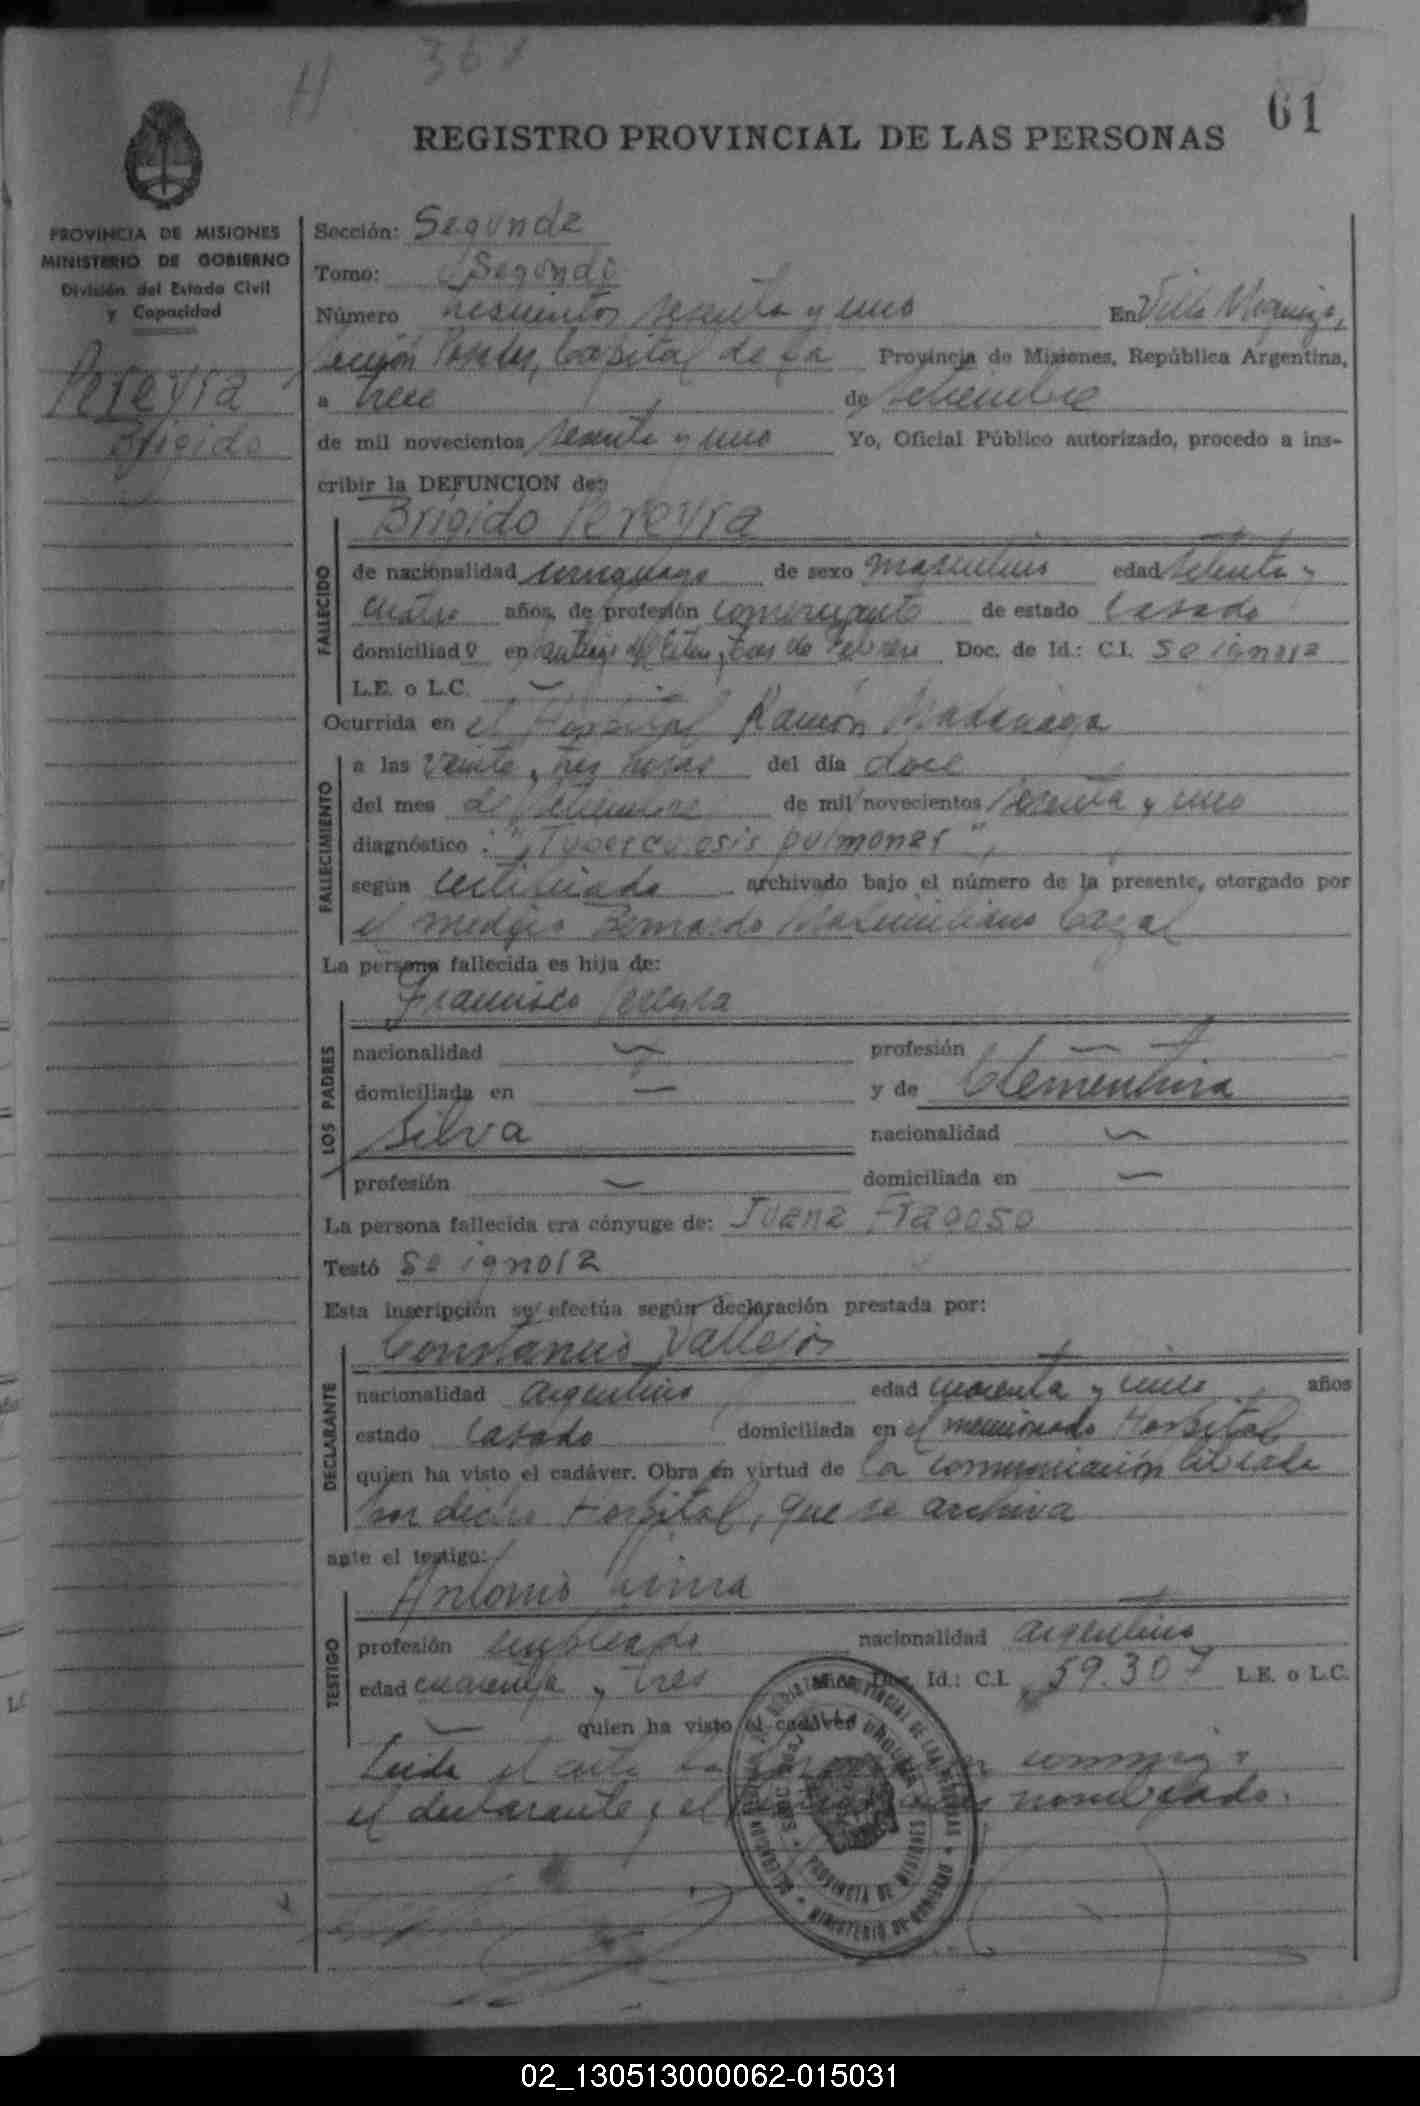 H 361
61
REGISTRO PROVINCIAL DE LAS PERSONAS
PROVINCIA DE MISIONES
MINISTERIO DE GOBIERNO
División del Estado Civil
y Capacidad
Pereyra
Brigido
Sección: Segunda
Tomo: Segundo
Número trescientos sesenta y uno En Villa Urquiza,
Posadas, Capital de la Provincia de Misiones, República Argentina,
a trece de setiembre
de mil novecientos sesenta y uno Yo, Oficial Público autorizado, procedo a ins-
cribir la DEFUNCION de:
Brígido Pereyra
FALLECIDO
de nacionalidad uruguayo de sexo masculino edad setenta y
cuatro años, de profesión comerciante de estado casado
domiciliado en Doc. de Id.: C.I. se ignora
L.E. o L.C. —
Ocurrida en el Hospital Ramón Madariaga
FALLECIMIENTO
a las veinte y tres horas del día doce
del mes de setiembre de mil novecientos sesenta y uno
diagnóstico : "Tuberculosis pulmonar",
según certificado archivado bajo el número de la presente, otorgado por
el medico Bernardo Maximiliano Cazal
La persona fallecida es hija de:
Francisco Pereyra
LOS PADRES
nacionalidad — profesión —
domiciliada en — y de Clementina
Silva nacionalidad —
profesión — domiciliada en —
La persona fallecida era cónyuge de: Juana Fragoso
Testó se ignora
Esta inscripción se efectúa según declaración prestada por:
Constancio Vallejos
DECLARANTE
nacionalidad argentino edad cuarenta y cinco años
estado casado domiciliada en el mencionado Hospital
quien ha visto el cadáver. Obra en virtud de la comunicación librada
por dicho Hospital, que se archiva
ante el testigo:
Antonio
TESTIGO
profesión empleado nacionalidad argentino
edad cuarenta y tres años Doc. Id.: C.I. 59.307 L.E. o L.C.
— quien ha visto el cadáver
Leída el acta conmigo
el declarante y el nombrado.
PROVINCIA DE MISIONES
MINISTERIO DE GOBIERNO
02_130513000062-015031